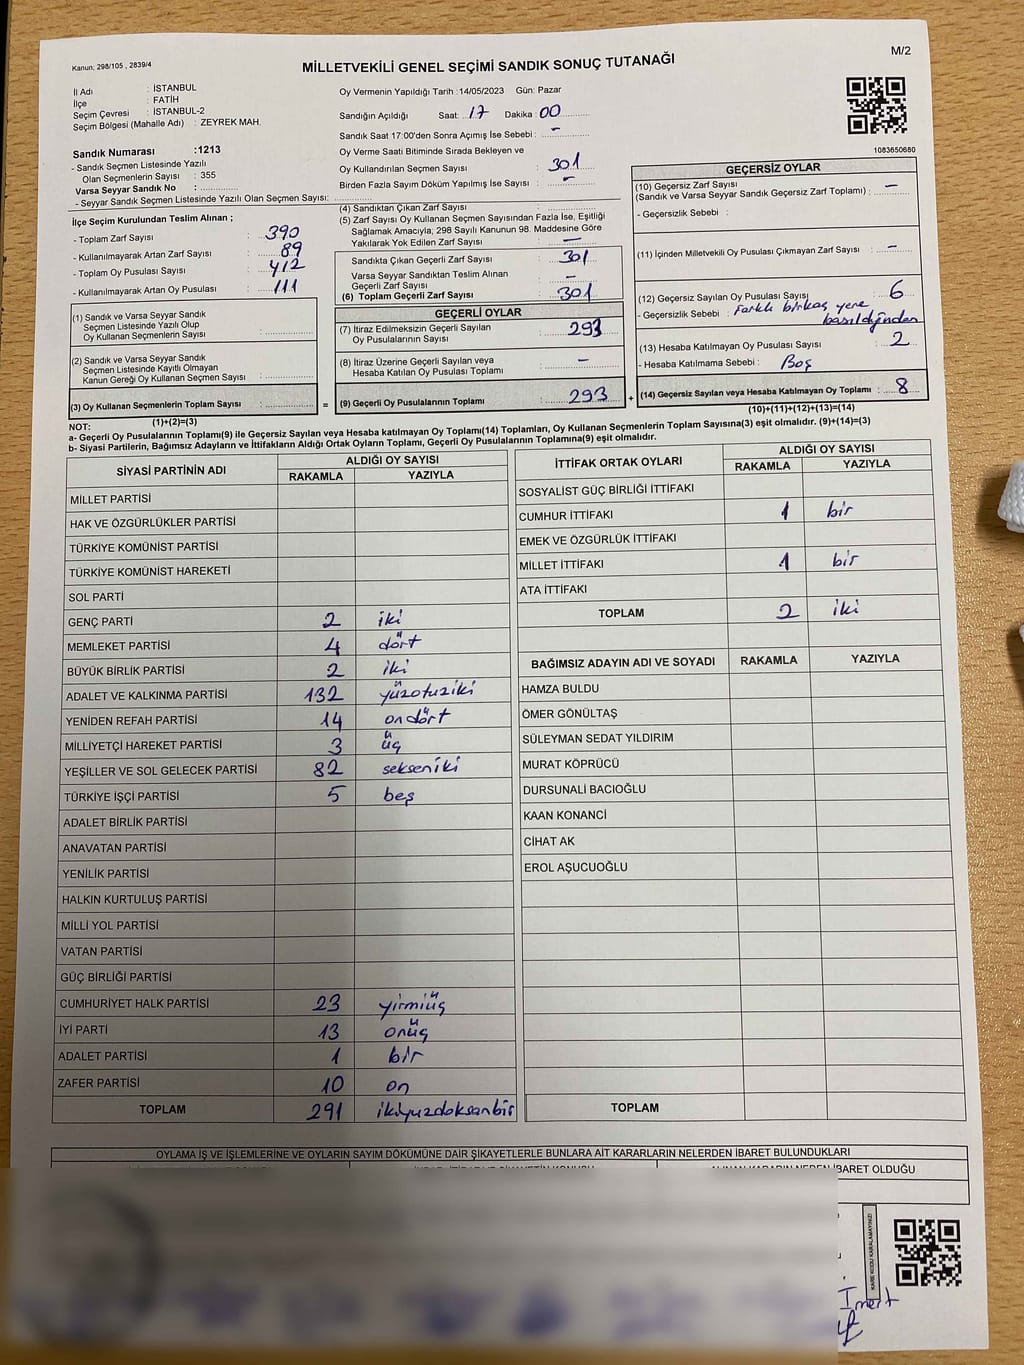 Kanun: 298/105 , 2839/4
M/2
MİLLETVEKİLİ GENEL SEÇİMİ SANDIK SONUÇ TUTANAĞI
İl Adı : İSTANBUL
İlçe : FATİH
Seçim Çevresi : İSTANBUL-2
Seçim Bölgesi (Mahalle Adı) : ZEYREK MAH.
Sandık Numarası :1213
- Sandık Seçmen Listesinde Yazılı
Olan Seçmenlerin Sayısı : 355
Varsa Seyyar Sandık No :
- Seyyar Sandık Seçmen Listesinde Yazılı Olan Seçmen Sayısı:
Oy Vermenin Yapıldığı Tarih :14/05/2023 Gün: Pazar
Sandığın Açıldığı Saat: 17 Dakika: 00
Sandık Saat 17:00'den Sonra Açımış İse Sebebi : -
Oy Verme Saati Bitiminde Sırada Bekleyen ve
Oy Kullandırılan Seçmen Sayısı : 301
Birden Fazla Sayım Döküm Yapılmış İse Sayısı : -
1083650680
İlçe Seçim Kurulundan Teslim Alınan ;
- Toplam Zarf Sayısı : 390
- Kullanılmayarak Artan Zarf Sayısı : 89
- Toplam Oy Pusulası Sayısı : 412
- Kullanılmayarak Artan Oy Pusulası : 111
(1) Sandık ve Varsa Seyyar Sandık
Seçmen Listesinde Yazılı Olup
Oy Kullanan Seçmenlerin Sayısı :
(2) Sandık ve Varsa Seyyar Sandık
Seçmen Listesinde Kayıtlı Olmayan
Kanun Gereği Oy Kullanan Seçmen Sayısı :
(3) Oy Kullanan Seçmenlerin Toplam Sayısı :
(1)+(2)=(3)
(4) Sandıktan Çıkan Zarf Sayısı :
(5) Zarf Sayısı Oy Kullanan Seçmen Sayısından Fazla İse, Eşitliği
Sağlamak Amacıyla, 298 Sayılı Kanunun 98. Maddesine Göre
Yakılarak Yok Edilen Zarf Sayısı : -
Sandıkta Çıkan Geçerli Zarf Sayısı : 301
Varsa Seyyar Sandıktan Teslim Alınan
Geçerli Zarf Sayısı : -
(6) Toplam Geçerli Zarf Sayısı : 301
GEÇERLİ OYLAR
(7) İtiraz Edilmeksizin Geçerli Sayılan
Oy Pusulalarının Sayısı : 293
(8) İtiraz Üzerine Geçerli Sayılan veya
Hesaba Katılan Oy Pusulası Toplamı : -
= (9) Geçerli Oy Pusulalarının Toplamı : 293 +
GEÇERSİZ OYLAR
(10) Geçersiz Zarf Sayısı
(Sandık ve Varsa Seyyar Sandık Geçersiz Zarf Toplamı) : -
- Geçersizlik Sebebi :
(11) İçinden Milletvekili Oy Pusulası Çıkmayan Zarf Sayısı : -
(12) Geçersiz Sayılan Oy Pusulası Sayısı : 6
- Geçersizlik Sebebi : Farklı birkaç yere
basıldığından
(13) Hesaba Katılmayan Oy Pusulası Sayısı : 2
- Hesaba Katılmama Sebebi : Boş
(14) Geçersiz Sayılan veya Hesaba Katılmayan Oy Toplamı : 8
(10)+(11)+(12)+(13)=(14)
NOT:
a- Geçerli Oy Pusulalarının Toplamı(9) ile Geçersiz Sayılan veya Hesaba katılmayan Oy Toplamı(14) Toplamları, Oy Kullanan Seçmenlerin Toplam Sayısına(3) eşit olmalıdır. (9)+(14)=(3)
b- Siyasi Partilerin, Bağımsız Adayların ve İttifakların Aldığı Ortak Oyların Toplamı, Geçerli Oy Pusulalarının Toplamına(9) eşit olmalıdır.
SİYASİ PARTİNİN ADI
ALDIĞI OY SAYISI
RAKAMLA YAZIYLA
MİLLET PARTİSİ
HAK VE ÖZGÜRLÜKLER PARTİSİ
TÜRKİYE KOMÜNİST PARTİSİ
TÜRKİYE KOMÜNİST HAREKETİ
SOL PARTİ
GENÇ PARTİ 2 iki
MEMLEKET PARTİSİ 4 dört
BÜYÜK BİRLİK PARTİSİ 2 iki
ADALET VE KALKINMA PARTİSİ 132 yüzotuziki
YENİDEN REFAH PARTİSİ 14 ondört
MİLLİYETÇİ HAREKET PARTİSİ 3 üç
YEŞİLLER VE SOL GELECEK PARTİSİ 82 sekseniki
TÜRKİYE İŞÇİ PARTİSİ 5 beş
ADALET BİRLİK PARTİSİ
ANAVATAN PARTİSİ
YENİLİK PARTİSİ
HALKIN KURTULUŞ PARTİSİ
MİLLİ YOL PARTİSİ
VATAN PARTİSİ
GÜÇ BİRLİĞİ PARTİSİ
CUMHURİYET HALK PARTİSİ 23 yirmiüç
İYİ PARTİ 13 onüç
ADALET PARTİSİ 1 bir
ZAFER PARTİSİ 10 on
TOPLAM 291 ikiyuzdoksanbir
İTTİFAK ORTAK OYLARI
ALDIĞI OY SAYISI
RAKAMLA YAZIYLA
SOSYALİST GÜÇ BİRLİĞİ İTTİFAKI
CUMHUR İTTİFAKI 1 bir
EMEK VE ÖZGÜRLÜK İTTİFAKI
MİLLET İTTİFAKI 1 bir
ATA İTTİFAKI
TOPLAM 2 iki
BAĞIMSIZ ADAYIN ADI VE SOYADI RAKAMLA YAZIYLA
HAMZA BULDU
ÖMER GÖNÜLTAŞ
SÜLEYMAN SEDAT YILDIRIM
MURAT KÖPRÜCÜ
DURSUNALİ BACIOĞLU
KAAN KONANCİ
CİHAT AK
EROL AŞUCUOĞLU
TOPLAM
OYLAMA İŞ VE İŞLEMLERİNE VE OYLARIN SAYIM DÖKÜMÜNE DAİR ŞİKAYETLERLE BUNLARA AİT KARARLARIN NELERDEN İBARET BULUNDUKLARI
İBARET OLDUĞU
KARE KODU KARALAMAYINIZ!